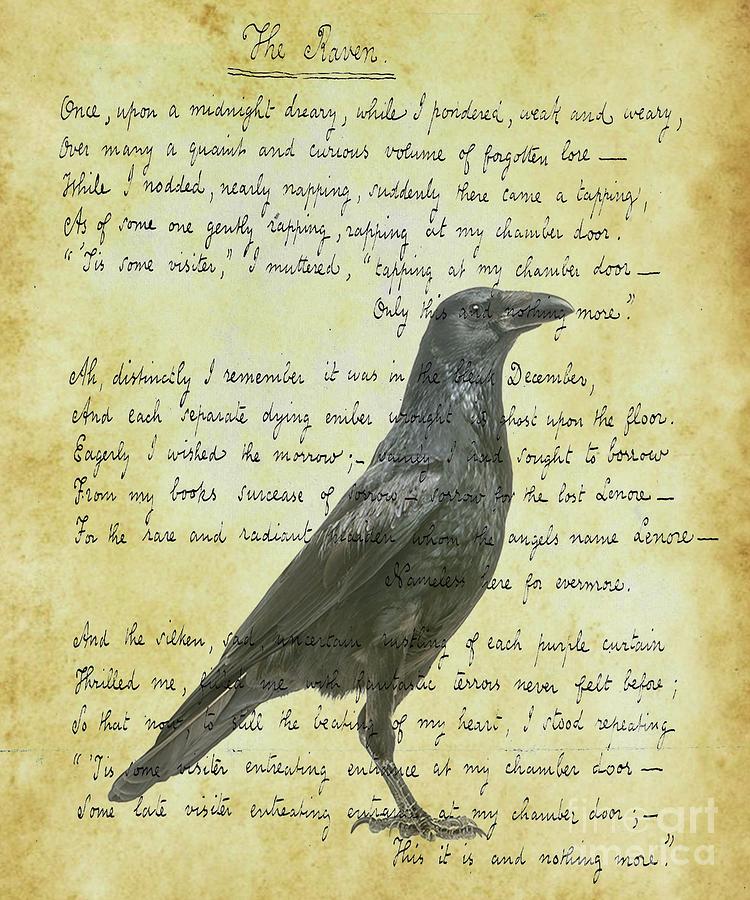 The Raven.
Once, upon a midnight dreary, while I pondered, weak and weary,
Over many a quaint and curious volume of forgotten lore —
While I nodded, nearly napping, suddenly there came a tapping,
As of some one gently rapping, rapping at my chamber door.
"'Tis some visiter," I muttered, "tapping at my chamber door —
Only this and nothing more."
Ah, distinctly I remember it was in the bleak December,
And each separate dying ember wrought its ghost upon the floor.
Eagerly I wished the morrow; – vainly I had sought to borrow
From my books surcease of sorrow — sorrow for the lost Lenore —
For the rare and radiant maiden whom the angels name Lenore —
Nameless here for evermore.
And the silken, sad, uncertain rustling of each purple curtain
Thrilled me, filled me with fantastic terrors never felt before;
So that now, to still the beating of my heart, I stood repeating
"'Tis some visiter entreating entrance at my chamber door —
Some late visiter entreating entrance at my chamber door; —
This it is and nothing more."
fine art
america